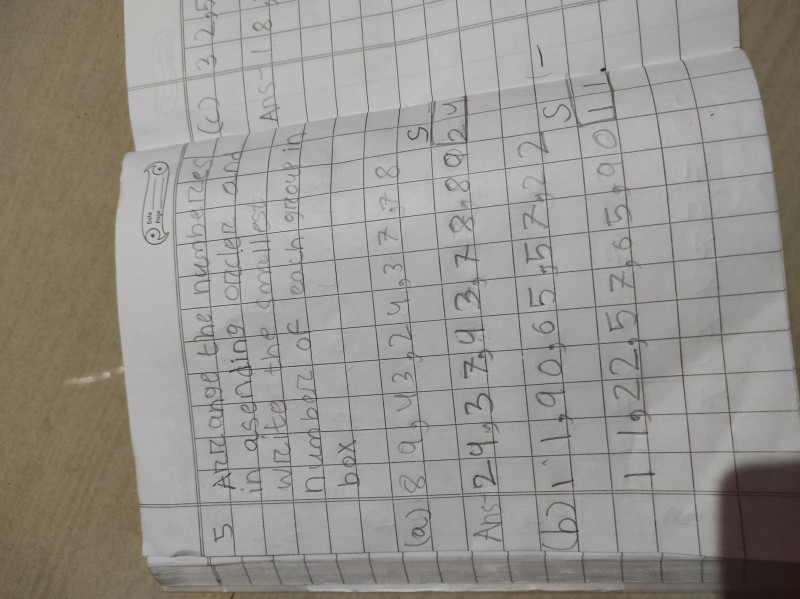 Date
Page
5 Arrange the numberes
in asending order and
write the smallest
number of each group in
box
(a) 89,43,24,37,78 S
Ans- 24,37,43,78,89 24
(b) 11,90,65,57,22 S
11,22,57,65,90 11
(c) 32,5
Ans- 18,